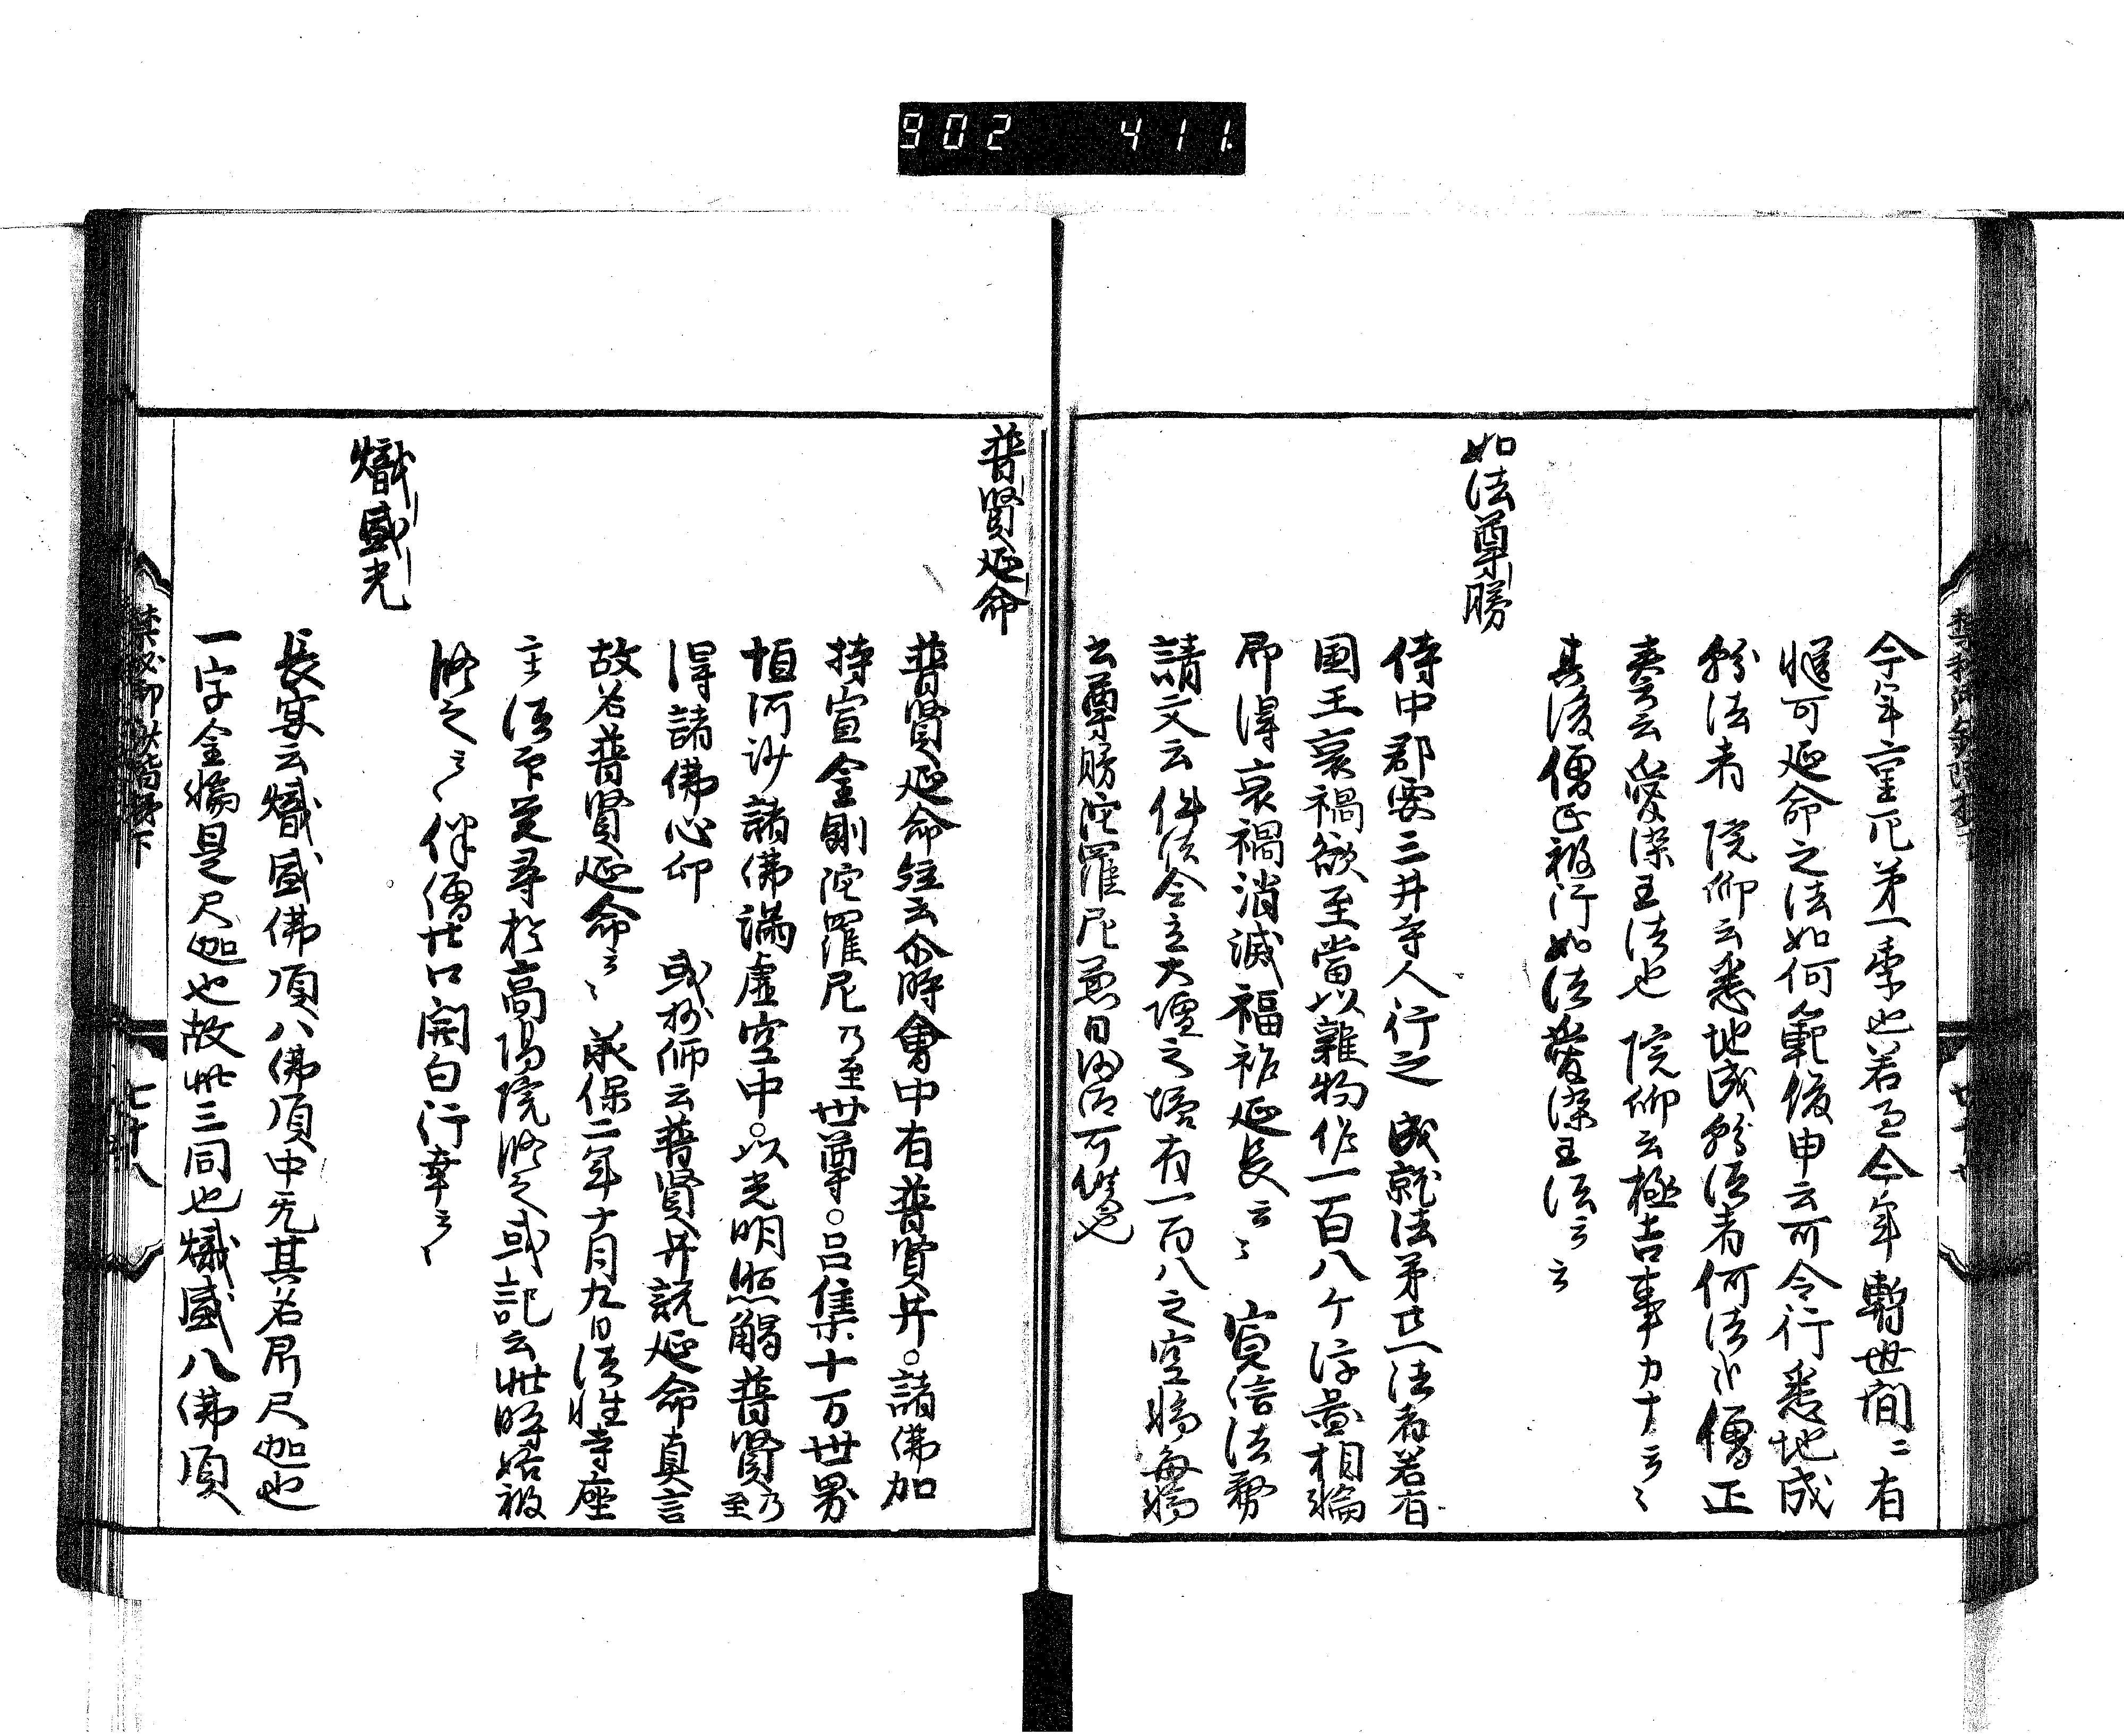 902 411
今年重厄第一季也若過今年暫世間ニ有
惟可延命之法如何範俊申云可令行悉地成
就法者院仰云悉地成就法者何法乎僧正
奏云愛染王法也院仰云極吉事カナ云々
其後僧正被行如法愛染王法云云
如法尊勝
侍中郡要三井寺人行之成就法第廿一法者若有
国王衰禍欲至當以雜物作一百八ケ浮圖相輪
即得哀禍消滅福祚延長云々寛信法務
請文云件法令立大壇之塔有一百八之空輪毎輪
云尊勝陀羅尼
普賢延命
普賢延命経云尒時會中有普賢井諸佛加
持宣金剛陀羅尼乃至世尊召集十方世界
恒河沙諸佛満虚空中以光明照觸普賢乃至
得諸佛心印或抄師云普賢井説延命真言
故名普賢延命云々承保二年十月九日法性寺座
主法印覚尋於高陽院修之或記云此時始被
修之云々伴僧廿口開白行幸云々
熾盛光
長宴云熾盛佛頂八佛頂中无其名即尺迦也
一字金輪是尺迦也故此三同也熾盛八佛頂
七十八